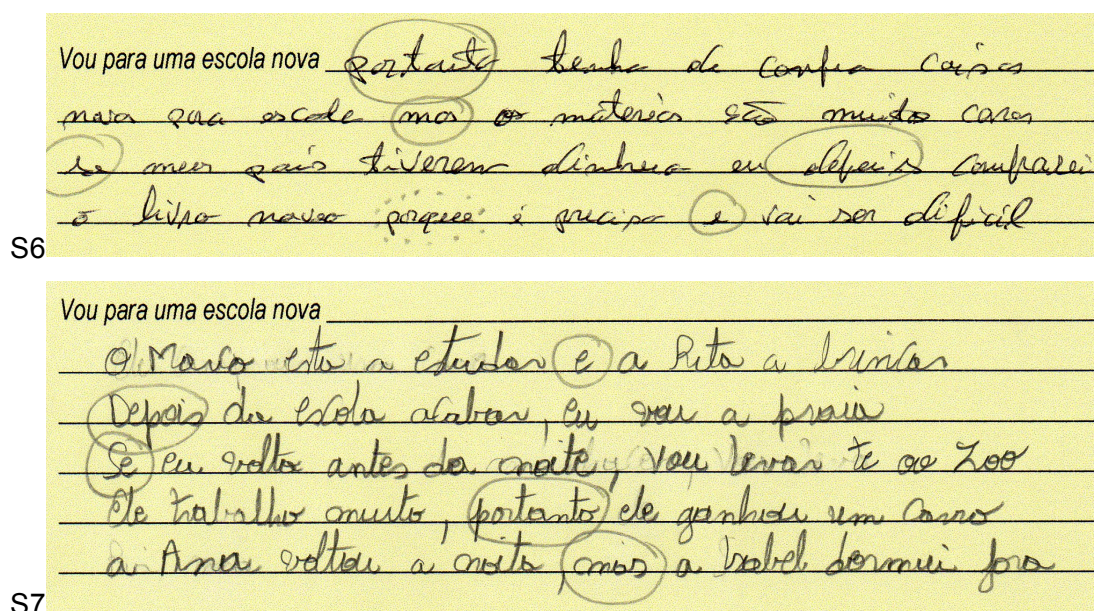 Vou para uma escola nova portanto tenho de compra coisas
nova para escola mas os materiais são muito caros
se meus pais tiverem dinheiro eu depois comprarei
o livro novo porque é preciso e vai ser dificil
S6
Vou para uma escola nova
O Marco esta a estudar e a Rita a brincar
Depois da escola acabar, eu vou a praia
Se eu volto antes da noite, vou levar te ao Zoo
Ele trabalho muito, portanto ele ganhou um carro
a Ana voltou a noite, mas a Isabel dormiu fora
S7